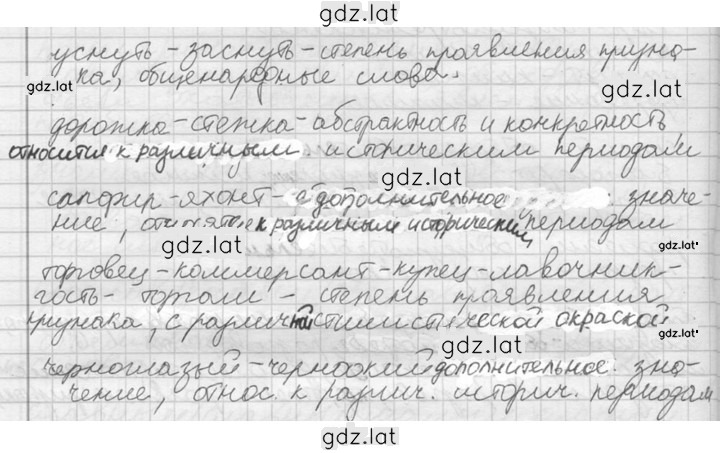 gdz.lat
уснуть - заснуть - степень проявления призна-
ка, общенародные слова.
gdz.lat
gdz.lat
дорожка - стежка - абстрактность и конкретность,
относится к различным историческим периодам
gdz.lat
сапфир - яхонт - с дополнительное значе-
ние, относятся к различным историческим периодам
gdz.lat
gdz.lat
торговец - коммерсант - купец - лавочник -
гость - торгаш - степень проявления
признака, с различной стилистической окраской
gdz.lat
gdz.lat
черноглазый - черноокий дополнительное зна-
чение, относ. к различ. историч. периодам
gdz.lat